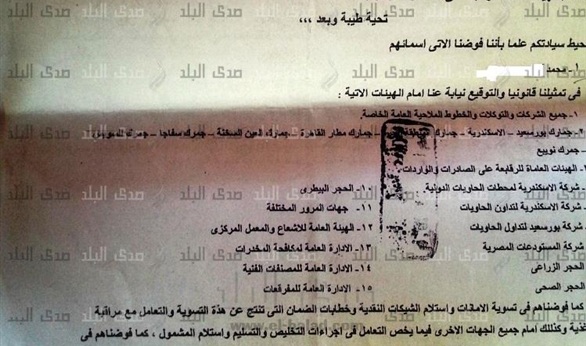 تحية طيبة وبعد ،،،
حيط سيادتكم علما بأننا فوضنا الاتى اسمائهم
١- محمد
فى تمثيلنا قانونيا والتوقيع نيابة عنا امام الهيئات الاتية :
١- جميع الشركات والتوكلات والخطوط الملاحية العامة الخاصة.
جمارك بورسعيد – الاسكندرية – جمارك – جمارك مطار القاهرة – جمارك العين السخنة – جمرك سفاجا – جمرك السويس
جمرك نويبع
الهيئات العامة للرقابة على الصادرات والواردات.
شركة الاسكندرية لمحطات الحاويات الدولية.
١٠- الحجر البيطرى
شركة الاسكندرية لتداول الحاويات
١١- جهات المرور المختلفة
شركة بورسعيد لتداول الحاويات
١٢- الهيئة العامة للاشعاع والمعمل المركزى
شركة المستودعات المصرية
١٣- الادارة العامة لمكافحة المخدرات
الحجر الزراعى
١٤- الادارة العامة للمصنفات الفنية
الحجر الصحى
١٥- الادارة العامة للمفرقعات
كما فوضناهم فى تسوية الامانات واستلام الشيكات النقدية وخطابات الضمان التى تنتج عن هذة التسوية والتعامل مع مراقبة
غذية وكذلك امام جميع الجهات الاخرى فيما يخص التعامل فى اجراءات التخليص والتسليم واستلام المشمول ، كما فوضناهم فى
صدى البلد